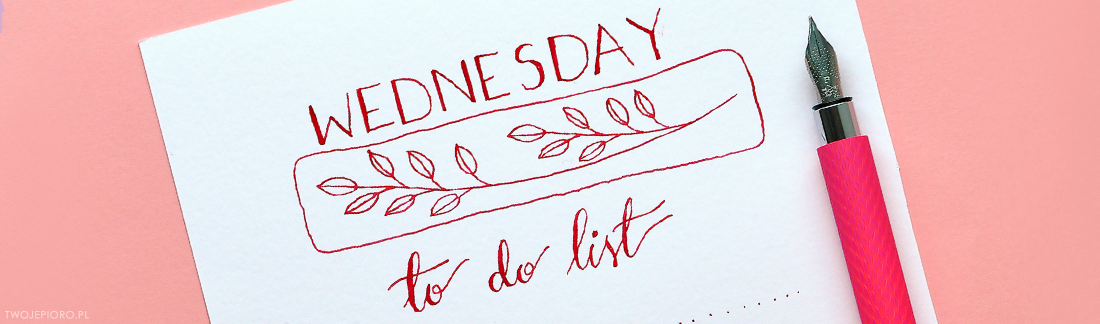 WEDNESDAY
to do list
TWOJEPIORO.PL